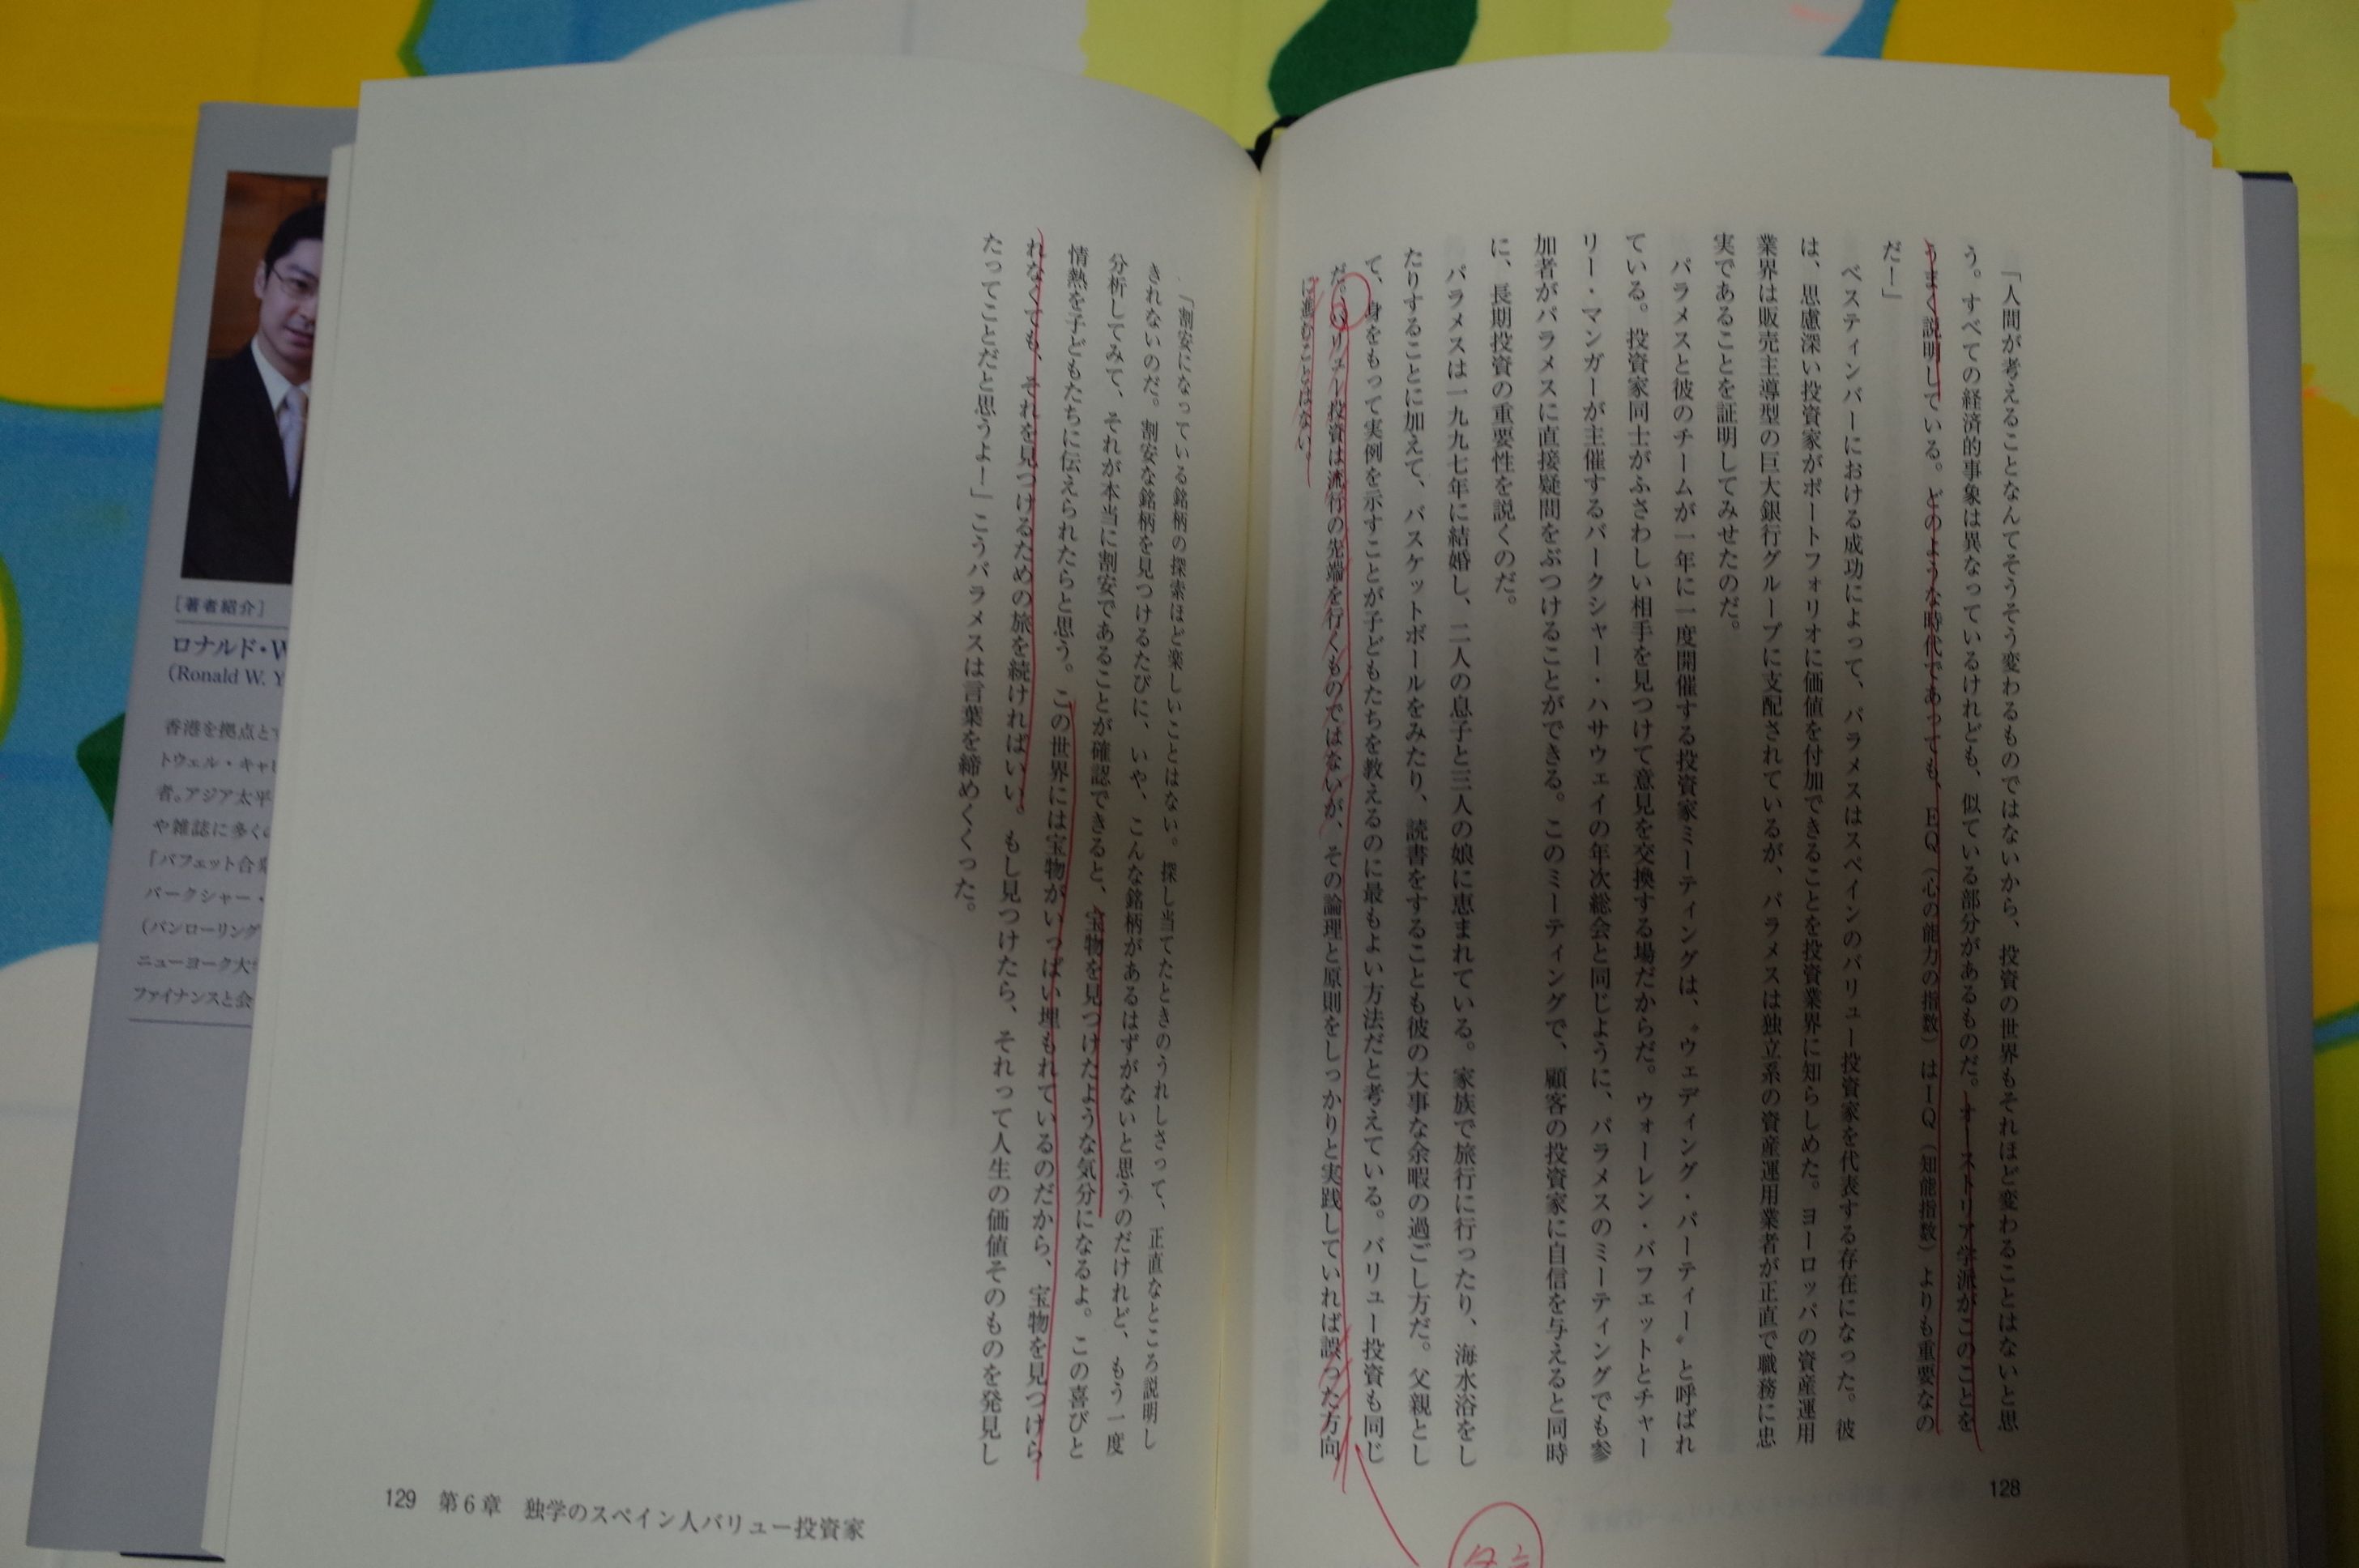 「人間が考えることなんてそうそう変わるものではないから、投資の世界もそれほど変わることはないと思
う。すべての経済的事象は異なっているけれども、似ている部分があるものだ。オーストリア学派がこのことを
うまく説明している。どのような時代であっても、EQ（心の能力の指数）はIQ（知能指数）よりも重要なの
だ！」
ベスティンバーにおける成功によって、パラメスはスペインのバリュー投資家を代表する存在になった。彼
は、思慮深い投資家がポートフォリオに価値を付加できることを投資業界に知らしめた。ヨーロッパの資産運用
業界は販売主導型の巨大銀行グループに支配されているが、パラメスは独立系の資産運用業者が正直で職務に忠
実であることを証明してみせたのだ。
パラメスと彼のチームが一年に一度開催する投資家ミーティングは、〝ウェディング・パーティー〟と呼ばれ
ている。投資家同士がふさわしい相手を見つけて意見を交換する場だからだ。ウォーレン・バフェットとチャー
リー・マンガーが主催するバークシャー・ハサウェイの年次総会と同じように、パラメスのミーティングでも参
加者がパラメスに直接疑問をぶつけることができる。このミーティングで、顧客の投資家に自信を与えると同時
に、長期投資の重要性を説くのだ。
パラメスは一九九七年に結婚し、二人の息子と三人の娘に恵まれている。家族で旅行に行ったり、海水浴をし
たりすることに加えて、バスケットボールをみたり、読書をすることも彼の大事な余暇の過ごし方だ。父親とし
て、身をもって実例を示すことが子どもたちを教えるのに最もよい方法だと考えている。バリュー投資も同じ
だ。バリュー投資は流行の先端を行くものではないが、その論理と原則をしっかりと実践していれば誤った方向
に進むことはない。
128
「割安になっている銘柄の探索ほど楽しいことはない。探し当てたときのうれしさって、正直なところ説明し
きれないのだ。割安な銘柄を見つけるたびに、いや、こんな銘柄があるはずがないと思うのだけれど、もう一度
分析してみて、それが本当に割安であることが確認できると、宝物を見つけたような気分になるよ。この喜びと
情熱を子どもたちに伝えられたらと思う。この世界には宝物がいっぱい埋もれているのだから、宝物を見つけら
れなくても、それを見つけるための旅を続ければいい。もし見つけたら、それって人生の価値そのものを発見し
たってことだと思うよ！」こうパラメスは言葉を締めくくった。
129 第6章 独学のスペイン人バリュー投資家
［著者紹介］
ロナルド・W
(Ronald W. Y
香港を拠点と
トウェル・キャ
者。アジア太平
や雑誌に多く
『バフェット合衆
バークシャー・
(パンローリング
ニューヨーク大
ファイナンスと会